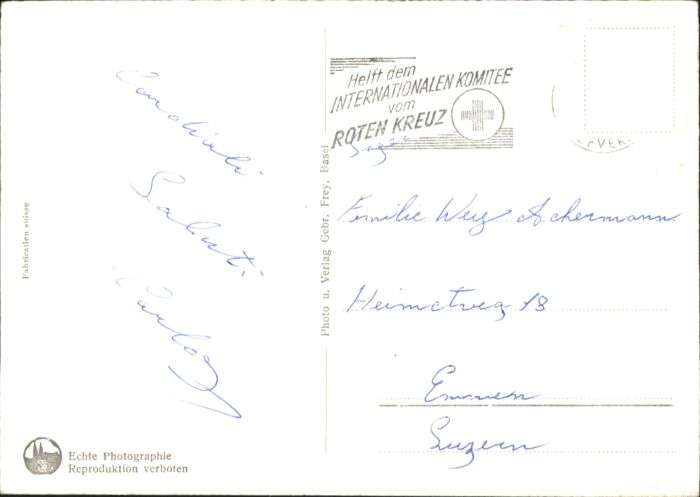 Cordiali
Saluti
Carlo
Helft dem
INTERNATIONALEN KOMITEE
vom
ROTEN KREUZ
Familie Acherman
Heimatweg 18
Emmen
Luzern
Fabrication suisse
Photo u. Verlag Gebr. Frey, Basel
Echte Photographie
Reproduktion verboten